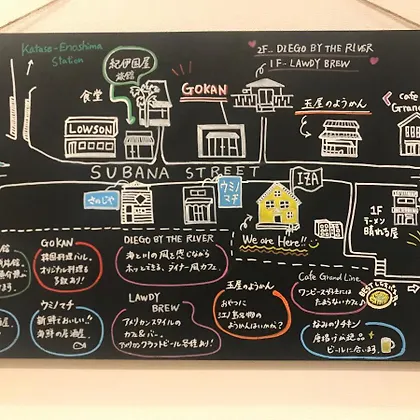 Katase-Enoshima
Station
紀伊国屋
旅館
食堂
GOKAN
2F… DIEGO BY THE RIVER
1F… LAWDY BREW
玉屋のようかん
Cafe
LOWSON
SUBANA STREET
さのじや
ウミノ
マチ
IZA
We are Here!!
1F
ラーメン
晴れる屋
GOKAN
韓国料理バル。
オリジナル料理も
多数あり!
ウミノマチ
新鮮でおいしい!!
海鮮の居酒屋。
DIEGO BY THE RIVER
海と川の風を感じながら
ホッとできる、ダイナー風カフェ。
LAWDY
BREW
アメリカンスタイルの
カフェ&バー。
アメリカンクラフトビール各種あり!
玉屋のようかん
おやつに
江ノ島名物の
ようかんはいかが?
Cafe Grand Line
ワンピース好きには
たまらないカフェ♪
なみのリチキン
唐揚げが絶品
ビールに合います。